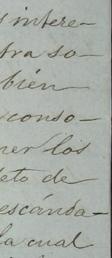 s intere-
tra so-
bién
sconso-
ner los
eto de
escánda-
la cual